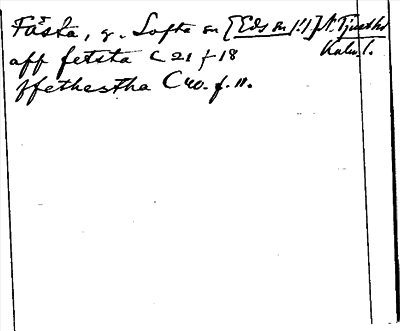 Fåsta, g. Lofta sn [Eds sn !] N. Tjust hd
Kalm. l.
aff fetsta C 21 f 18
ffethestha C 40. f. 11.